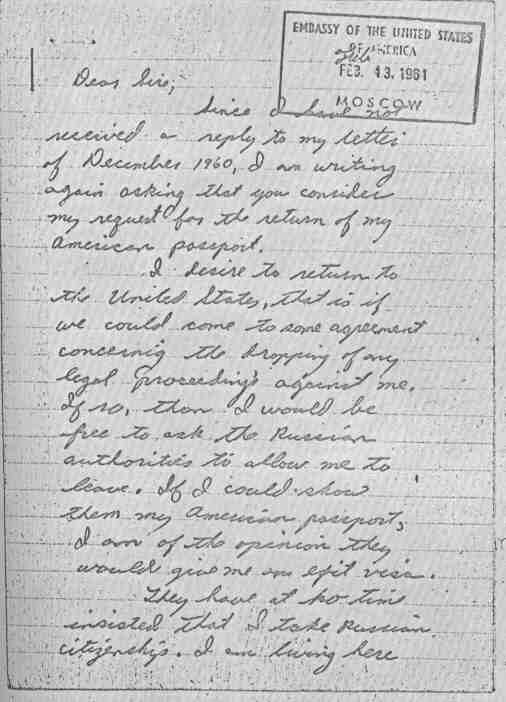 EMBASSY OF THE UNITED STATES
OF AMERICA
FEB. 13, 1961
MOSCOW
Dear Sirs;
Since I have not
received a reply to my letter
of December 1960, I am writing
again asking that you consider
my request for the return of my
American passport.
I desire to return to
the United States, that is if
we could come to some agreement
concernig the dropping of any
legal proceedings against me.
If so, than I would be
free to ask the Russian
authorities to allow me to
leave. If I could show
them my American passport,
I am of the opinion they
would give me an exit visa.
They have at no time
insisted that I take Russian
citizenship. I am living here